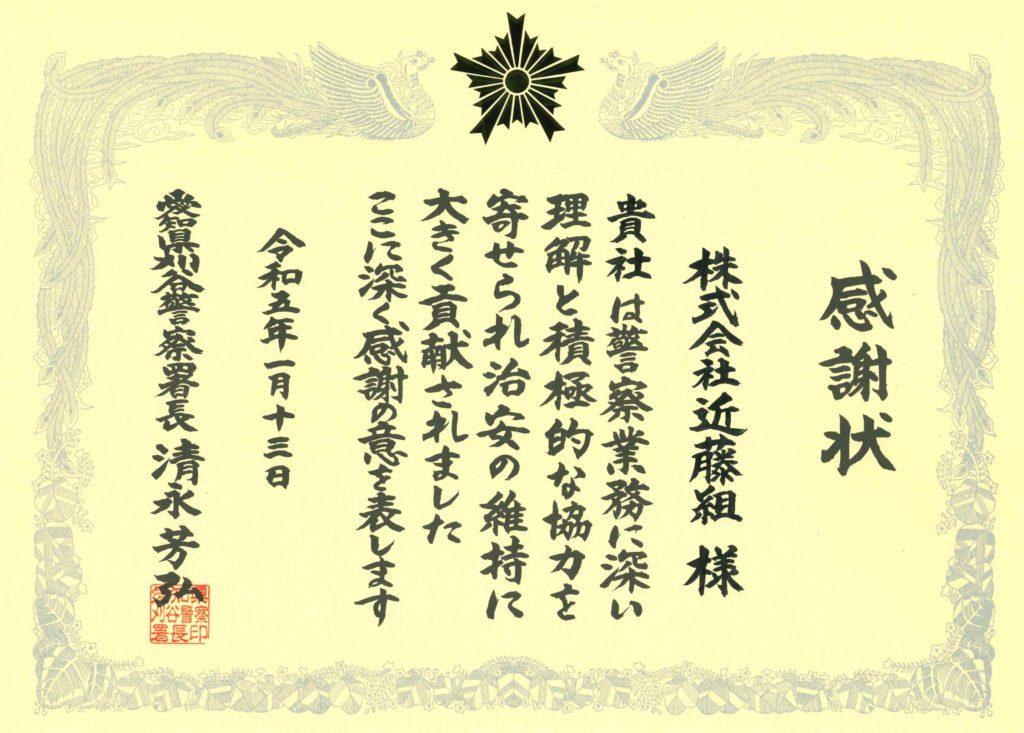 感謝状
株式会社近藤組 様
貴社は警察業務に深い
理解と積極的な協力を
寄せられ治安の維持に
大きく貢献されました
ここに深く感謝の意を表します
令和五年一月十三日
愛知県刈谷警察署長 清永芳弘
愛知県刈谷警察署長印